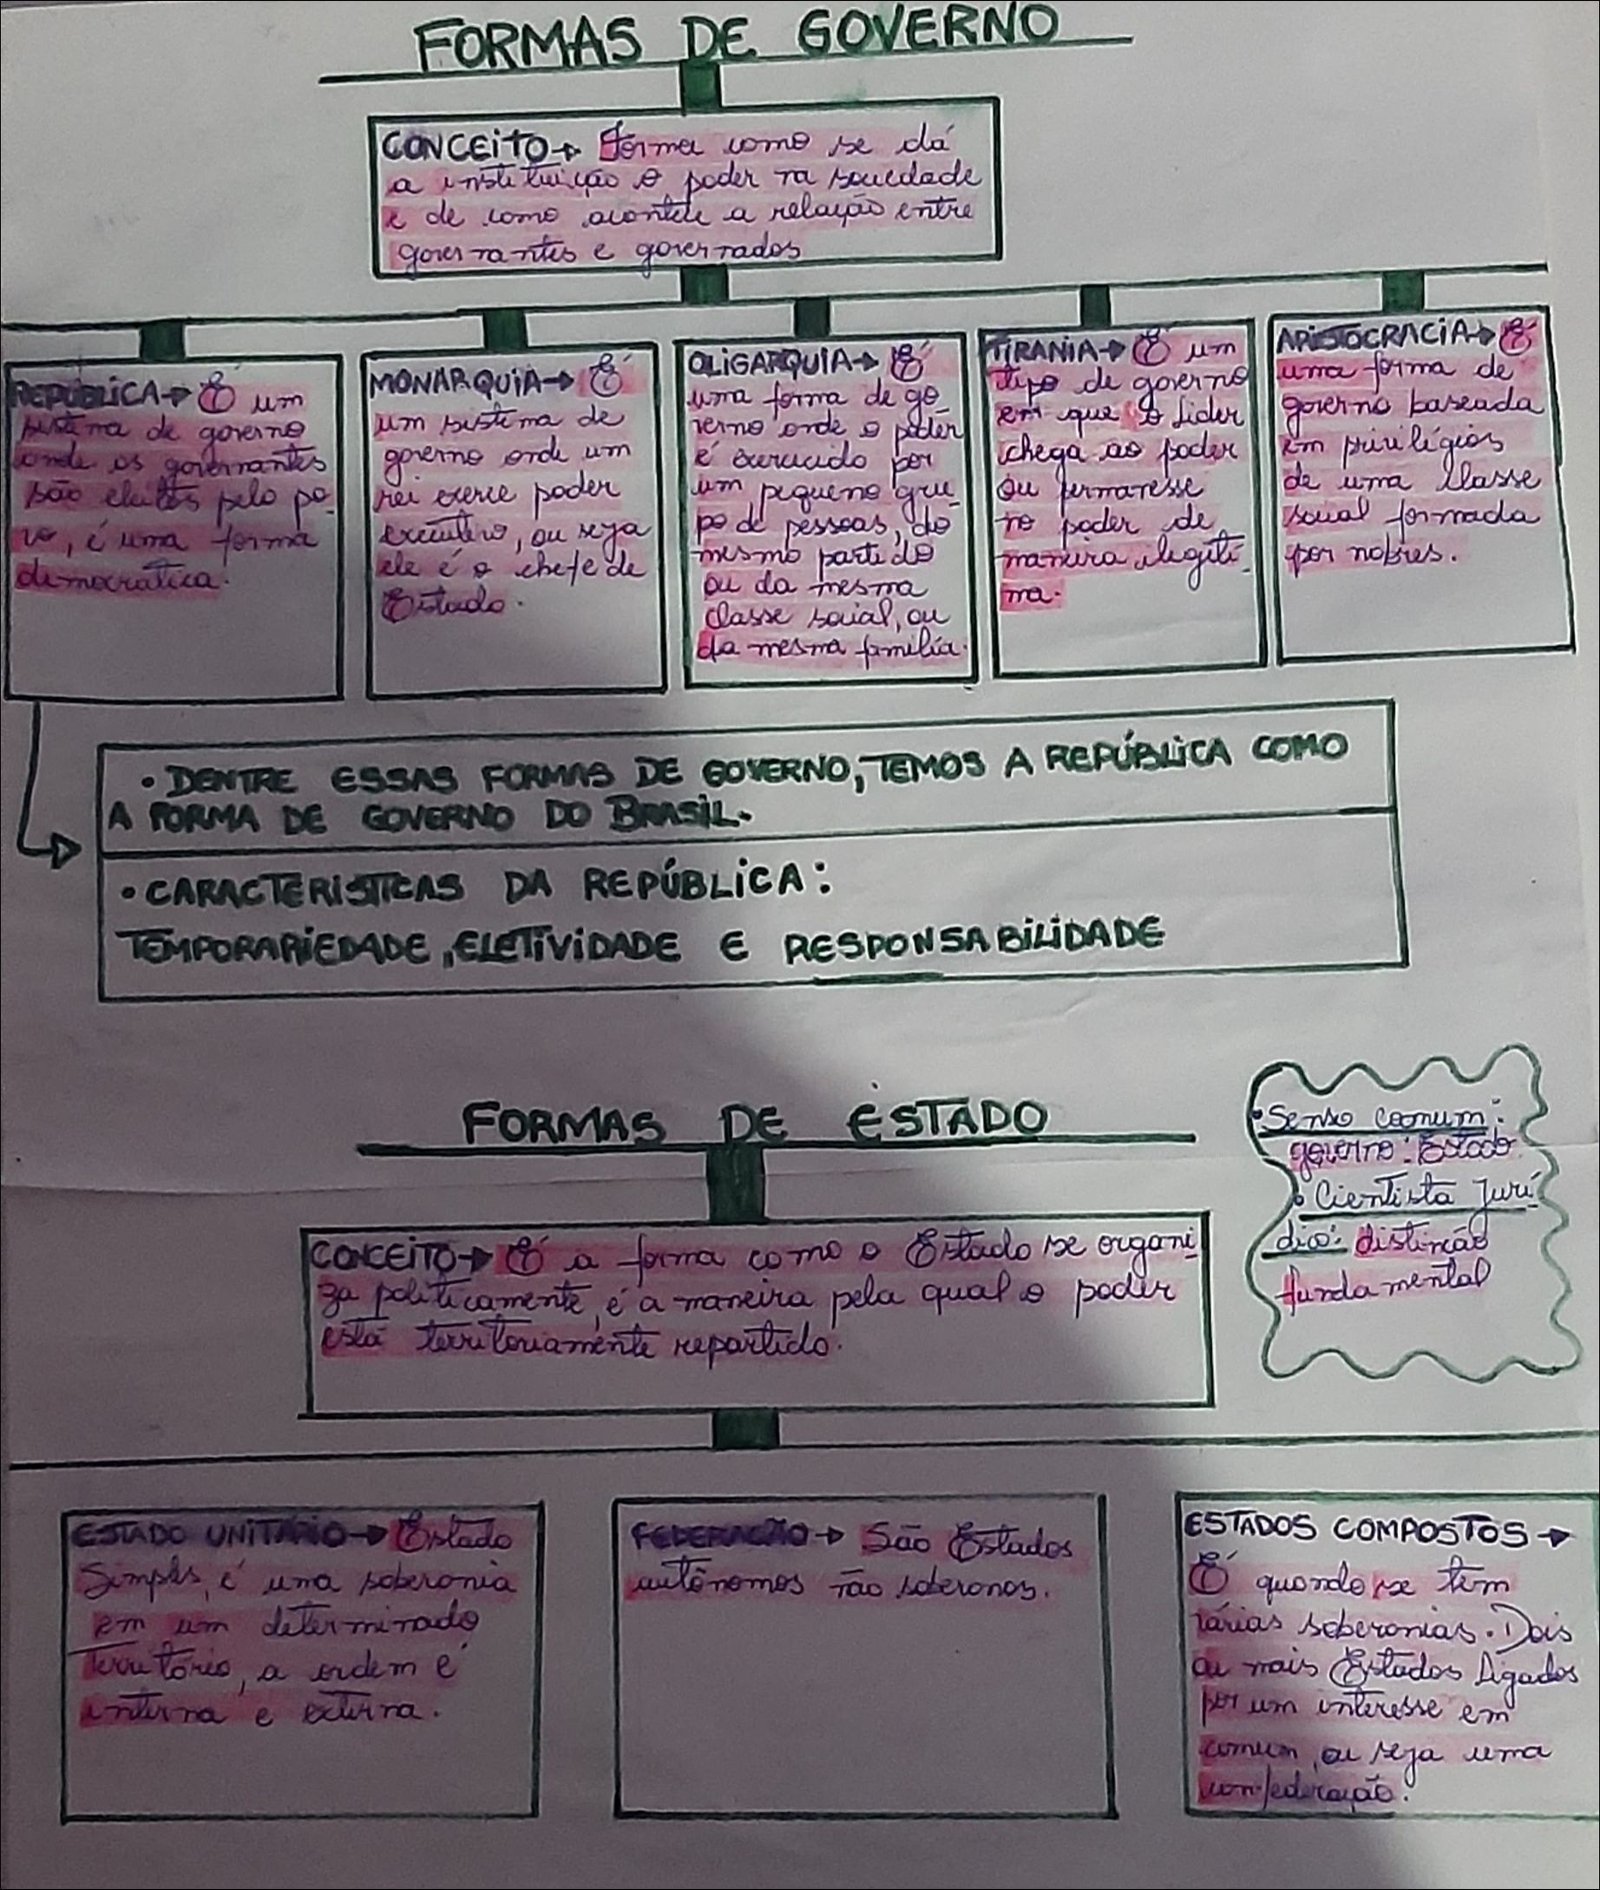 FORMAS DE GOVERNO
CONCEITO→ Forma como se dá
a instituição o poder na sociedade
e de como acontece a relação entre
governantes e governados
REPÚBLICA→ É um
sistema de governo
onde os governantes
são eleitos pelo po-
vo, é uma forma
democratica.
MONARQUIA→ É
um sistema de
governo onde um
rei exerce poder
executivo, ou seja
ele é o chefe de
Estado.
OLIGARQUIA→ É
uma forma de go
verno onde o poder
é exercido por
um pequeno gru-
po de pessoas, do
mesmo partido
ou da mesma
classe social, ou
da mesma familia.
TIRANIA→ É um
tipo de governo
em que o Lider
chega ao poder
ou permanesse
no poder de
maneira ilegiti-
ma.
ARISTOCRACIA→ É
uma forma de
governo baseada
em privilégios
de uma classe
social formada
por nobres.
• DENTRE ESSAS FORMAS DE GOVERNO, TEMOS A REPÚBLICA COMO
A FORMA DE GOVERNO DO BRASIL.
• CARACTERISTICAS DA REPÚBLICA:
TEMPORARIEDADE, ELETIVIDADE E RESPONSABILIDADE
FORMAS DE ESTADO
• Senso comum:
governo: Estado.
• Cientista Jurí-
dico: distinção
fundamental
CONCEITO→ É a forma como o Estado se organi-
za politicamente, é a maneira pela qual o poder
está territoriamente repartido.
ESTADO UNITÁRIO→ Estado
Simples, é uma soberonia
em um determinado
Território, a ordem é
interna e externa.
FEDERAÇÃO→ São Estados
autônomos não soberonos.
ESTADOS COMPOSTOS→
É quondo se tem
várias soberonias. Dois
ou mais Estados Ligados
por um interesse em
comum, ou seja uma
confederação.